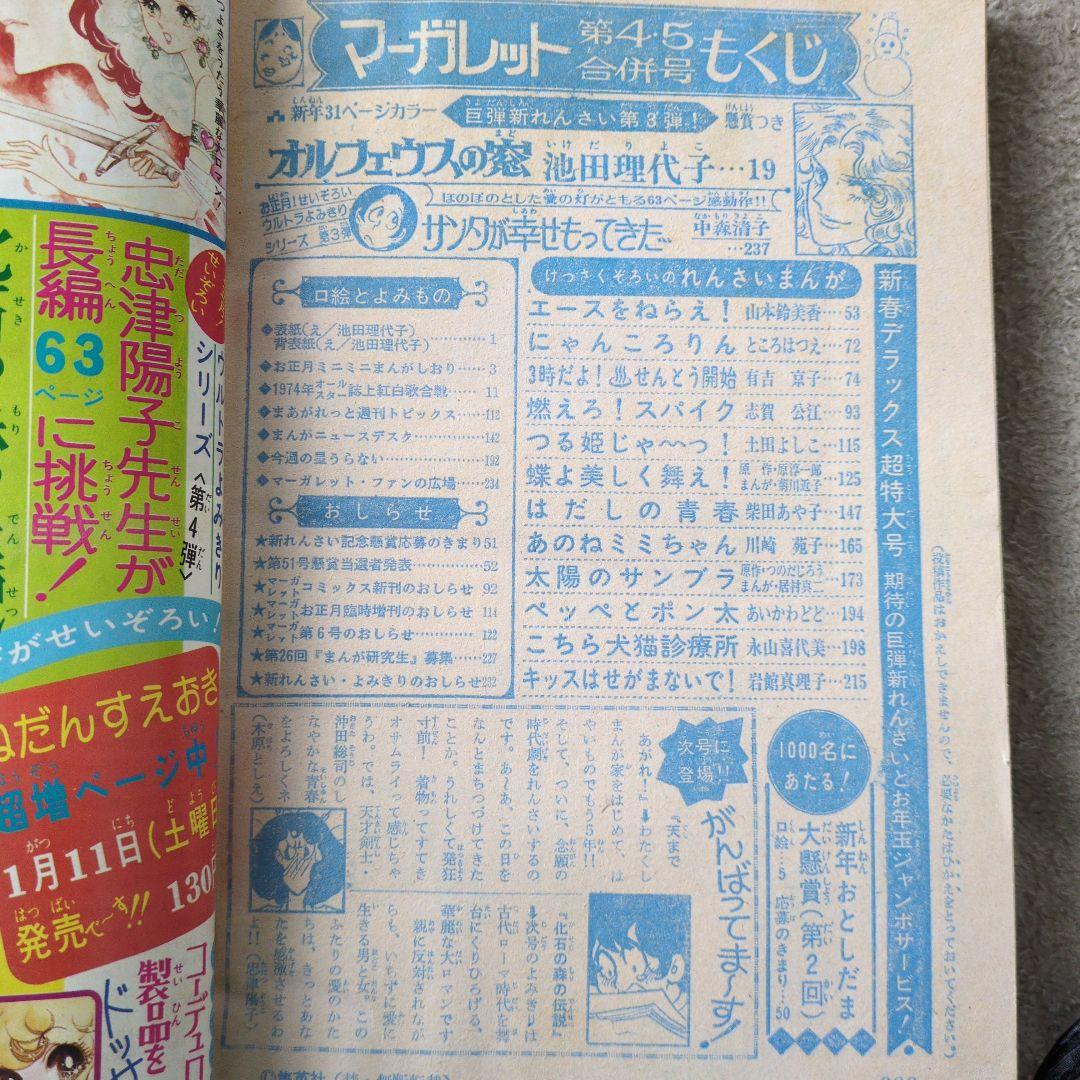 マーガレット 第4・5合併号 もくじ
新年31ページカラー 巨弾新れんさい第3弾! 懸賞つき
オルフェウスの窓 池田理代子…19
お正月!せいぞろいウルトラよみきりシリーズ 第3弾
ほのぼのとした愛の灯がともる63ページ感動作!!
サンタが幸せもってきた… 中森清子…237
口絵とよみもの
◆表紙(え/池田理代子)
背表紙(え/池田理代子)……1
◆お正月ミニミニまんがしおり……3
◆1974年オールスター誌上紅白歌合戦……11
◆まあがれっと週刊トピックス……112
◆まんがニュースデスク……142
◆今週の星うらない……192
◆マーガレット・ファンの広場……234
おしらせ
★新れんさい記念懸賞応募のきまり51
★第51号懸賞当選者発表……52
★マーガレットコミックス新刊のおしらせ 92
★マーガレットお正月臨時増刊のおしらせ 114
★マーガレット第6号のおしらせ……122
★第26回『まんが研究生』募集……227
★新れんさい・よみきりのおしらせ232
けっさくぞろいのれんさいまんが
エースをねらえ! 山本鈴美香…53
にゃんころりん ところはつえ…72
3時だよ!♨せんとう開始 有吉京子…74
燃えろ!スパイク 志賀公江…93
つる姫じゃ〜っ! 土田よしこ…115
蝶よ美しく舞え! 原作・原淳一郎 まんが・菊川近子…125
はだしの青春 柴田あや子…147
あのねミミちゃん 川崎苑子…165
太陽のサンブラ 原作・つのだじろう まんが・居村真二…173
ペッペとポン太 あいかわどど…194
こちら犬猫診療所 永山喜代美…198
キッスはせがまないで! 岩館真理子…215
新春デラックス超特大号 期待の巨弾新れんさいとお年玉ジャンボサービス!
(投稿作品はおかえしできませんので、必要なかたはひかえをとっておいてください。)
1000名にあたる!
新年おとしだま
大懸賞(第2回)
口絵…5 応募のきまり…50
次号に登場!!
がんばってま〜す!
『天まで
あがれ!』➡わたくし
まんが家をはじめて、は
やいものでもう5年!!
そして、ついに、念願の
時代劇をれんさいするの
です。あ〜あ、この日を
なんとまちつづけてきた
ことか。うれしくて発狂
寸前! 着物ってすてき
オサムライって感じちゃ
うわ。では、天才剣士・
沖田総司のし
なやかな青春
をよろしくネ
(木原としえ)
『化石の森の伝説』
➡次号のよみきりは
古代ローマ時代を舞
台にくりひろげる、
華麗な大ロマンです
親に反対されなが
らも、いちずに愛に
生きる男と女。この
ふたりの愛のかた
ちは、きっとあな
たを感激させるわ
よ!! (忠津陽子)
©集英社
ウルトラよみきり
シリーズ〈第4弾〉
忠津陽子先生が
長編63ページに挑戦!
がせいぞろい!
ねだんすえおき
超増ページ中
1月11日(土曜日
130円
発売で〜す!!
コーデュロ
製品を
ドッサ